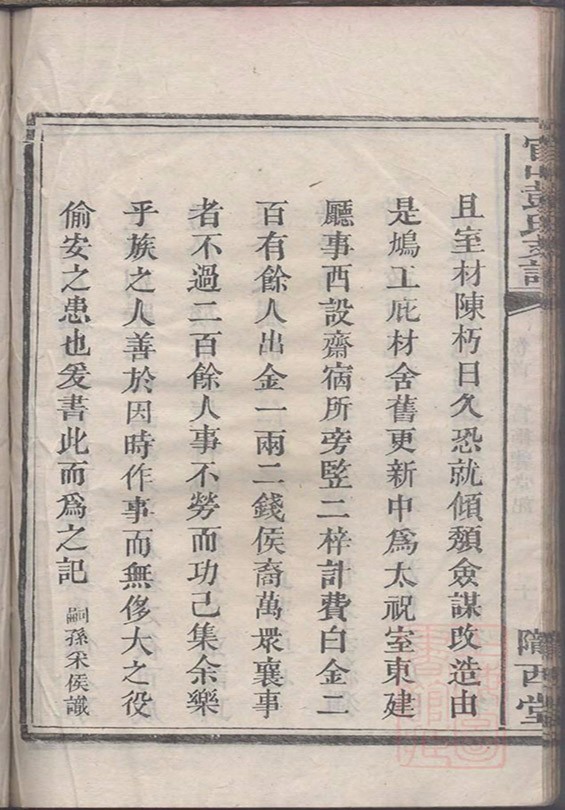 且室材陳朽日久恐就傾頽僉謀改造由
是鳩工庇材舍舊更新中爲太祝室東建
廳事西設齋宿所旁竪二梓計費白金二
百有餘人出金一兩二錢侯裔萬衆襄事
者不過二百餘人事不勞而功已集余樂
乎族之人善於因時作事而無侈大之役
偷安之患也爰書此而爲之記 嗣孫釆侯識
彭氏支譜
隴西堂